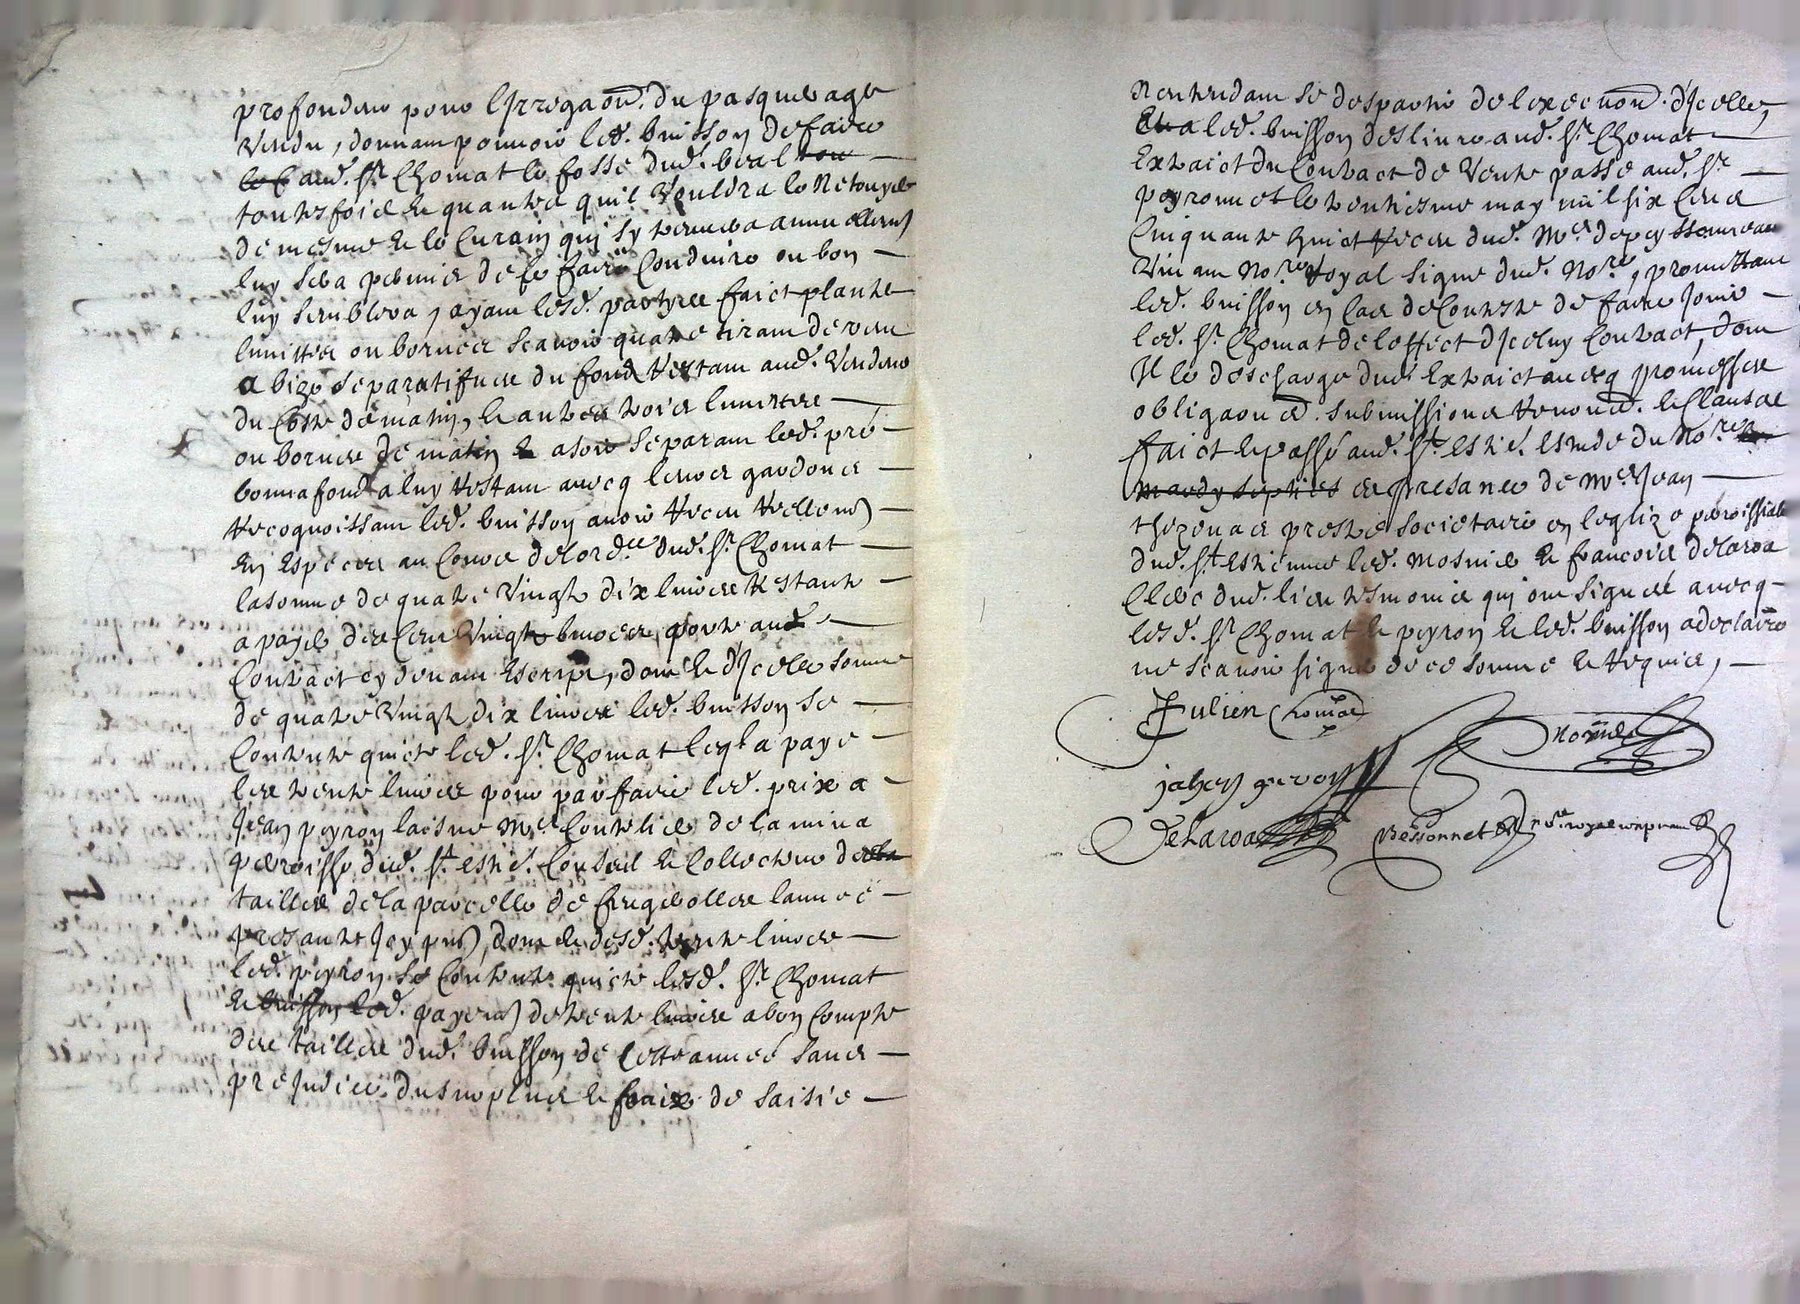 profondeur pour lirrigaon. du pasquerage
vendu, donnant pouvoir led. buisson de faire
aud. sr. Chomat le fosse dud. beal
toutesfois et quantes quil vouldra le netoyer
de mesme et le curain quy sy trouvera annuellemt
luy sera permis de le faire conduire ou bon
luy semblera, ayant lesd. partyes faict planter
limittes ou bornes scavoir quatre tirant de vent
a bize separatifves du fond restant aud. vendeur
du coste de matin, et autres trois limittes
ou bornes de matin a soir separant led. pre
bonnafond a luy restant avecq leurs gardons
recognoissant led. buisson avoir receu reellemt
en especes au cours de lordce dud. sr. Chomat
la somme de quatre vingts dix livres restante
a payer des cent vingts livres porte aud.
contract cy devant escript, dont et dicelle somme
de quatre vingt dix livres led. buisson se
contente quicte led. sr. Chomat leql a paye
les trente livres pour parfaire led. prix a
Jean peyron laisne Mre coutelier de la mina
parroisse dud. st. estie. consul et collecteur des
tailles de la parcelle de furgerolles lannee
presante Icy pnt, dont et desd. trente livres
led. peyron se contente quicte lesd. sr. Chomat
et buisson led. payemt de trente livres a bon compte
des tailles dud. buisson de cette annee sans
prejudice du surplus et fraix de saisie
nentendant se despartir de lexecuon. dicelle,
Et a led. buisson deslivre aud. sr. Chomat
Extraict du contract de vente passe aud. sr.
peyronnet le trentiesme may mil six cens
cinquante huict receu dud. Me.
vivant nore royal signe dud. nore, promettant
led. buisson en cas de conteste de faire jouir
led. sr. Chomat de leffect diceluy contract, dont
Il le descharge dud. Extraict avecq promesses
obligaons. submissions renonc. et clauses
faict et passe aud. st. estie. estude du nore
en presance de Mre Jean
thezenas prestre societaire en leglize parroissialle
dud. st. estienne led. mosnier et francois delaroa
clerc dud. lieu tesmoins qui ont signes avecq
lesd. sr. Chomat et peyron et led. buisson a declaire
ne scavoir signer de ce somme et requis,
Julien Chomat
jahen peron
Delaroa
Bessonnet nre royal